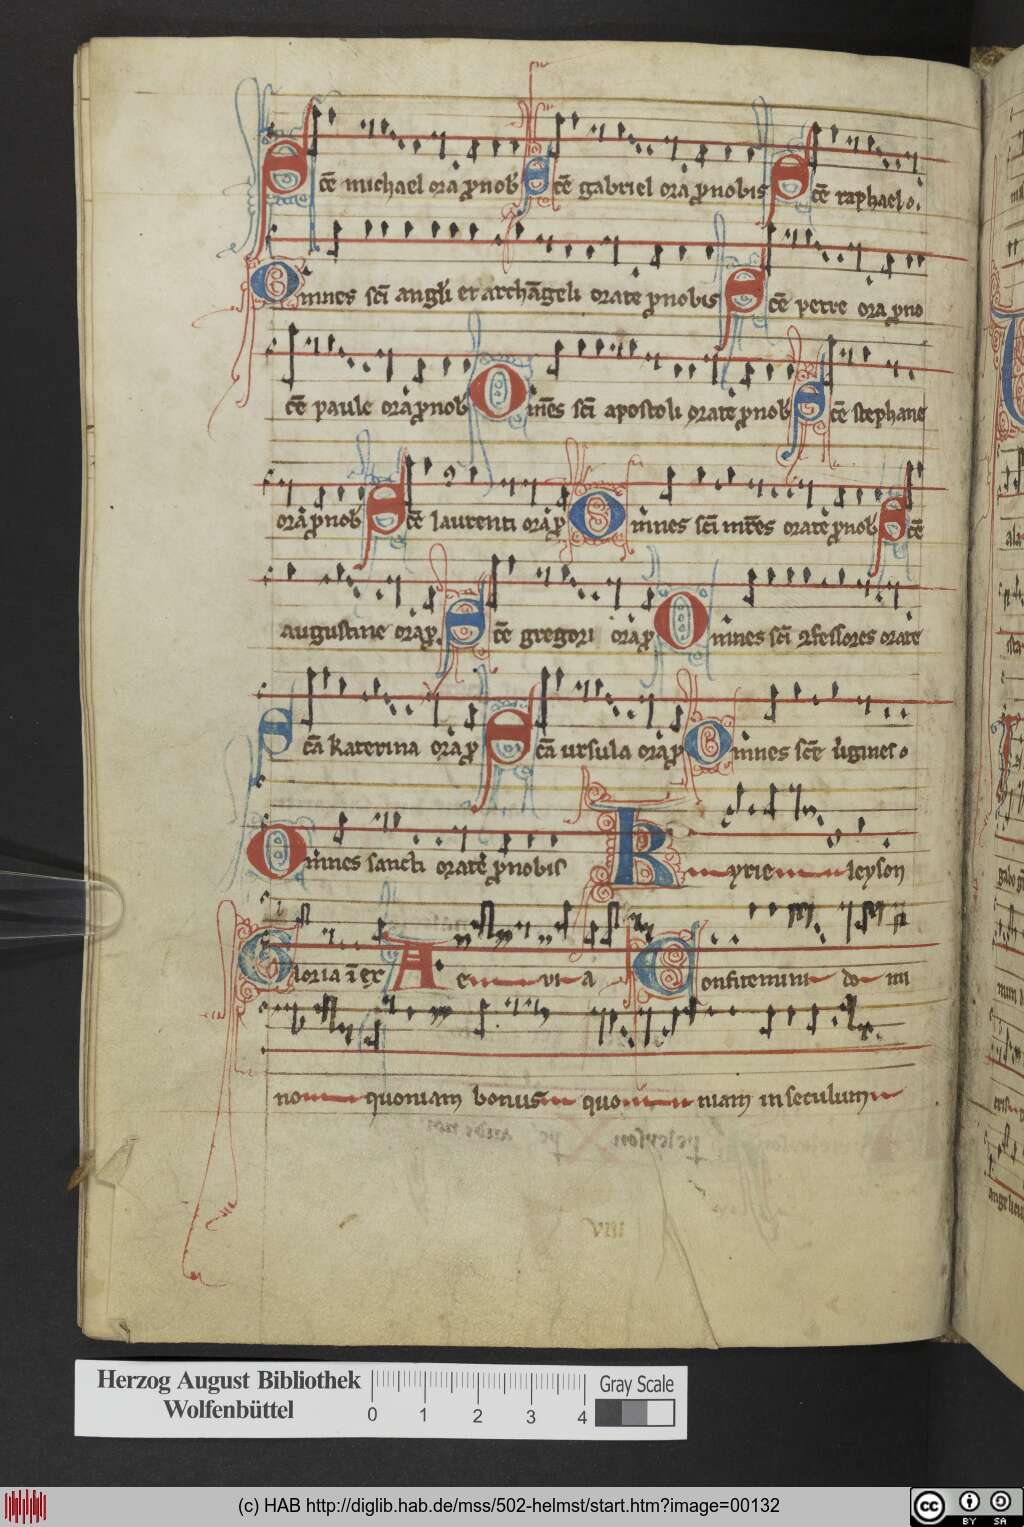 Sc̄e michael ora ꝓ nob᷒ Sc̄e gabriel ora ꝓ nobis Sc̄e raphael o.
Omnes sc̄i angl̄i et archāgeli orate ꝓ nobis Sc̄e petre ora ꝓ no
Sc̄e paule ora ꝓ nob᷒ Om̄es sc̄i apostoli orate ꝓ nob᷒ Sc̄e stephane
ora ꝓ nob᷒ Sc̄e laurenti ora ꝓ Omnes sc̄i mr̄es orate ꝓ nob᷒ Sc̄e
augustine ora ꝓ. Sc̄e gregori ora ꝓ Omnes sc̄i ꝯfessores orate
Sc̄a katerina ora ꝓ Sc̄a ursula ora ꝓ Omnes sc̄e v̓gines o
Omnes sancti orate ꝓ nobis Kyrie leyson
Gloria ī ex A e vi a Confitemini do mi
no quoniam bonus quo niam in seculum
VIII
Herzog August Bibliothek
Wolfenbüttel
0 1 2 3 4
Gray Scale
(c) HAB http://diglib.hab.de/mss/502-helmst/start.htm?image=00132
cc BY SA